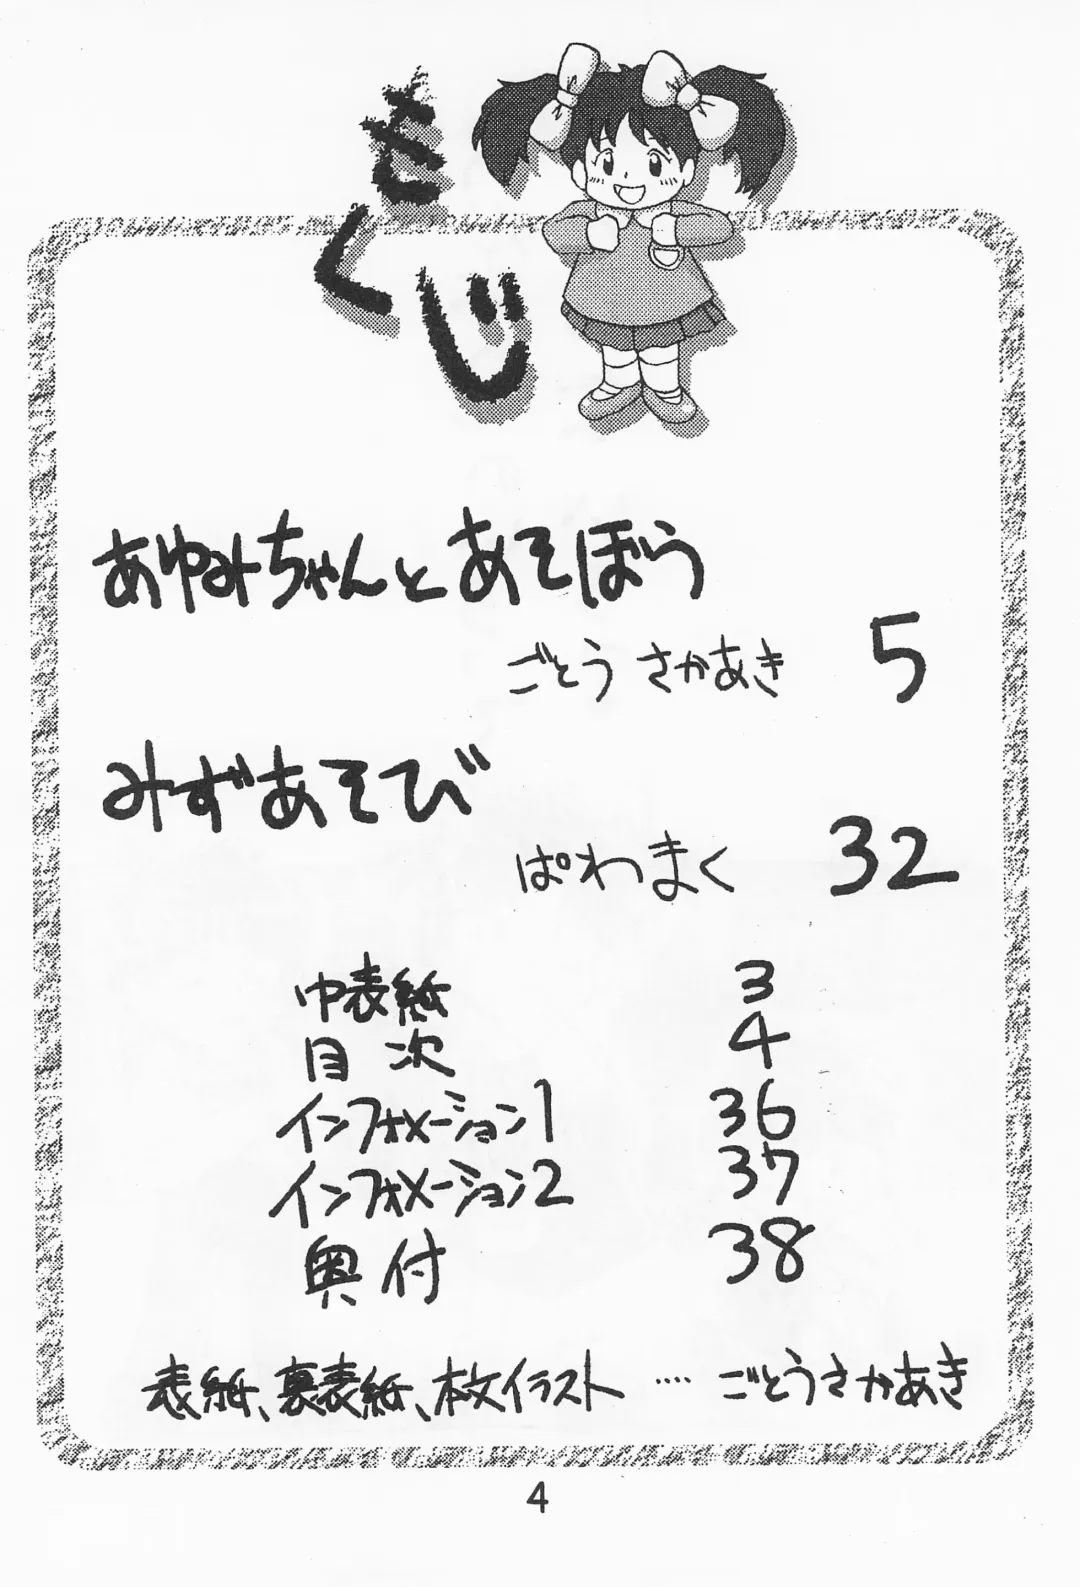 さくじ
あゆみちゃんとあそぼう
ごとう さかあき 5
みずあそび
ぱわまく 32
中表紙 3
目次 4
インフォメーション1 36
インフォメーション2 37
奥付 38
表紙、裏表紙、本文イラスト ‥‥ ごとうさかあき
4